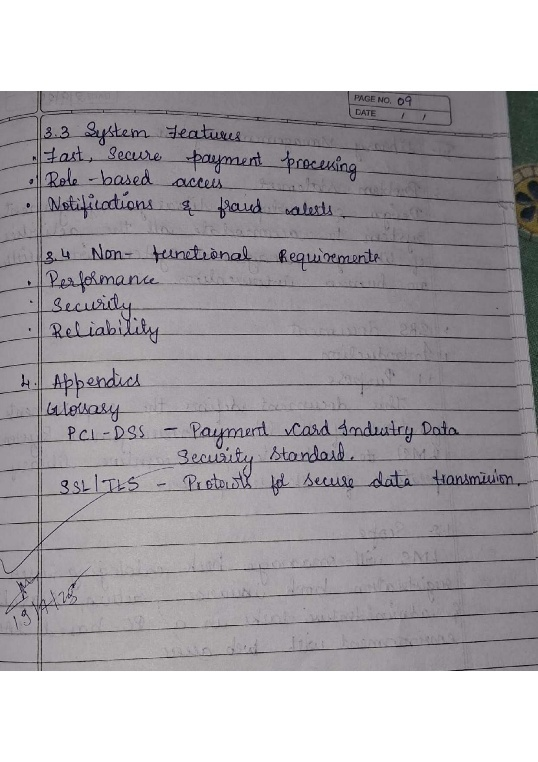 PAGE NO. 09
DATE / /
3.3 System Features
• Fast, Secure payment processing
• Role-based access
• Notifications & fraud alerts.
3.4 Non-functional Requirements
• Performance
• Security
• Reliability
4. Appendics
Glossary
PCI-DSS - Payment Card Industry Data
Security Standard.
SSL/TLS - Protocols for secure data transmission.